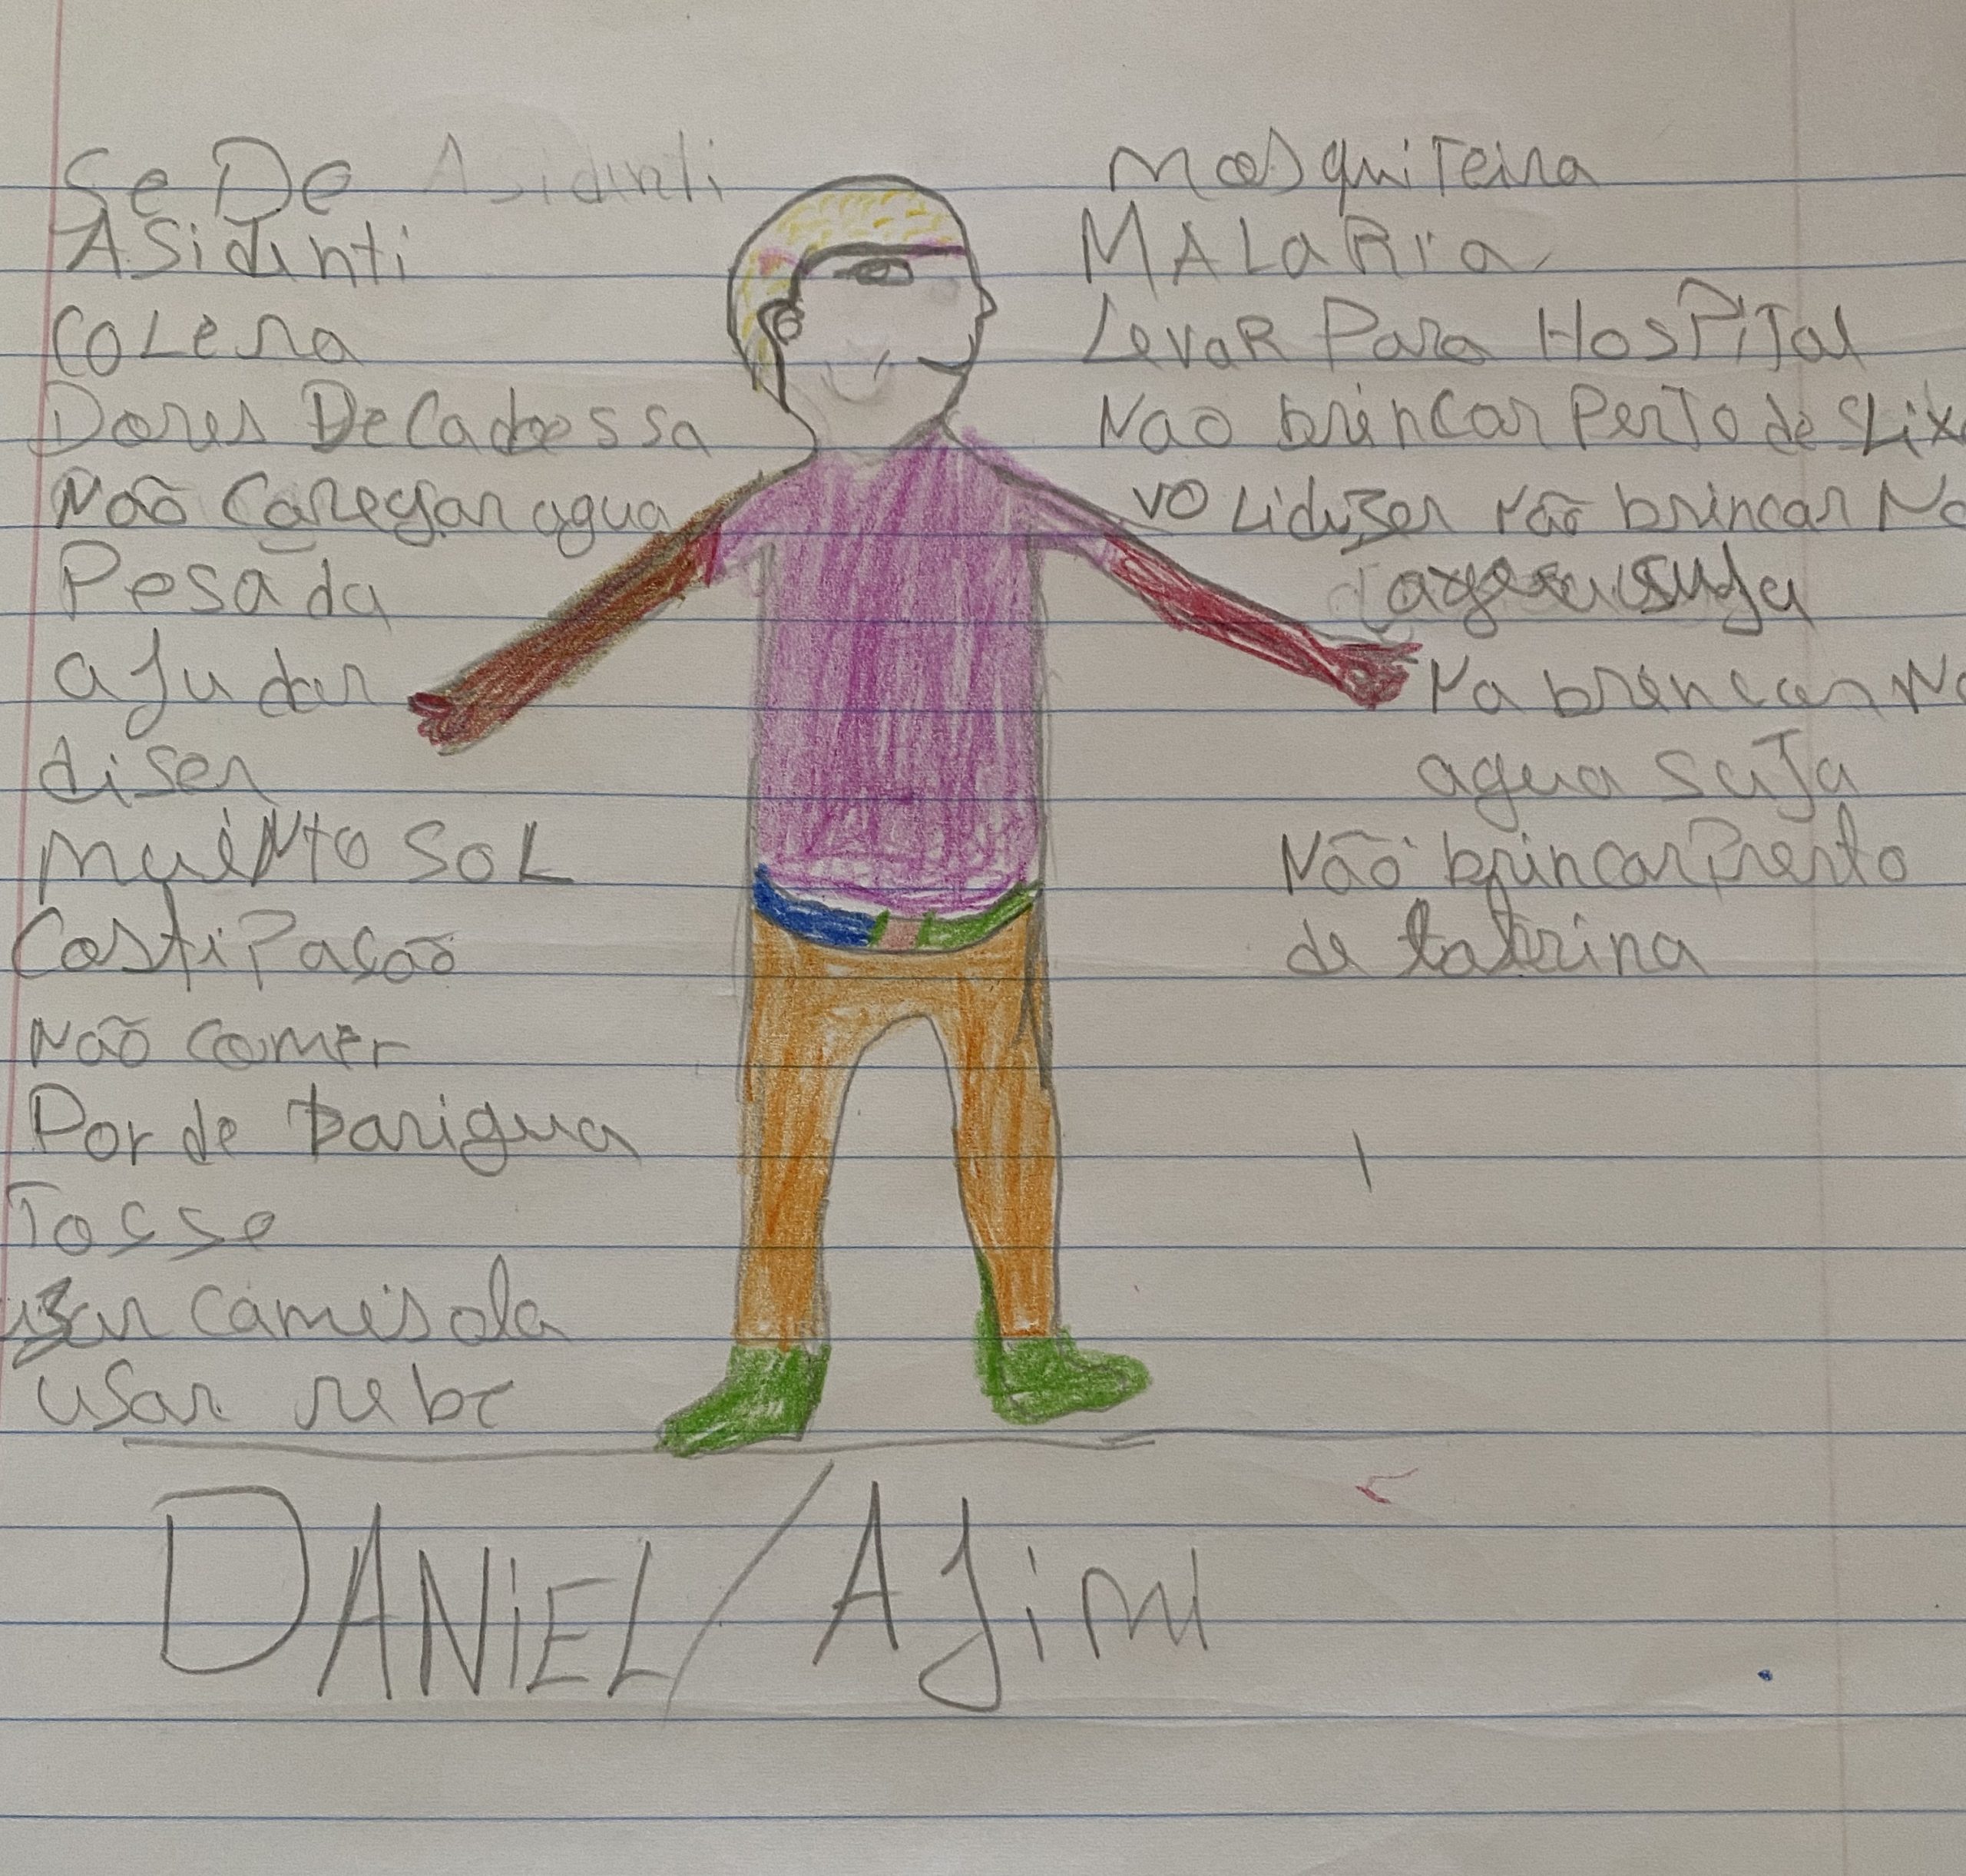 Se De Asidinti
ASidinti
COLera
Dores De Cabessa
Não Caregar agua
Pesada
ajudar
diser
muiNto SOL
CostiPação
Não comer
Dor de barigua
Tosse
usar camisola
usar rebe
mosquiTeira
MALaRia
LevaR Para HosPiTal
Nao brincar PerTo de SLix
vo Lidiser Não brincar No
agua suja
Na brincar No
agua suJa
Não brincar Prerto
de latrina
DANiEL/AJimi